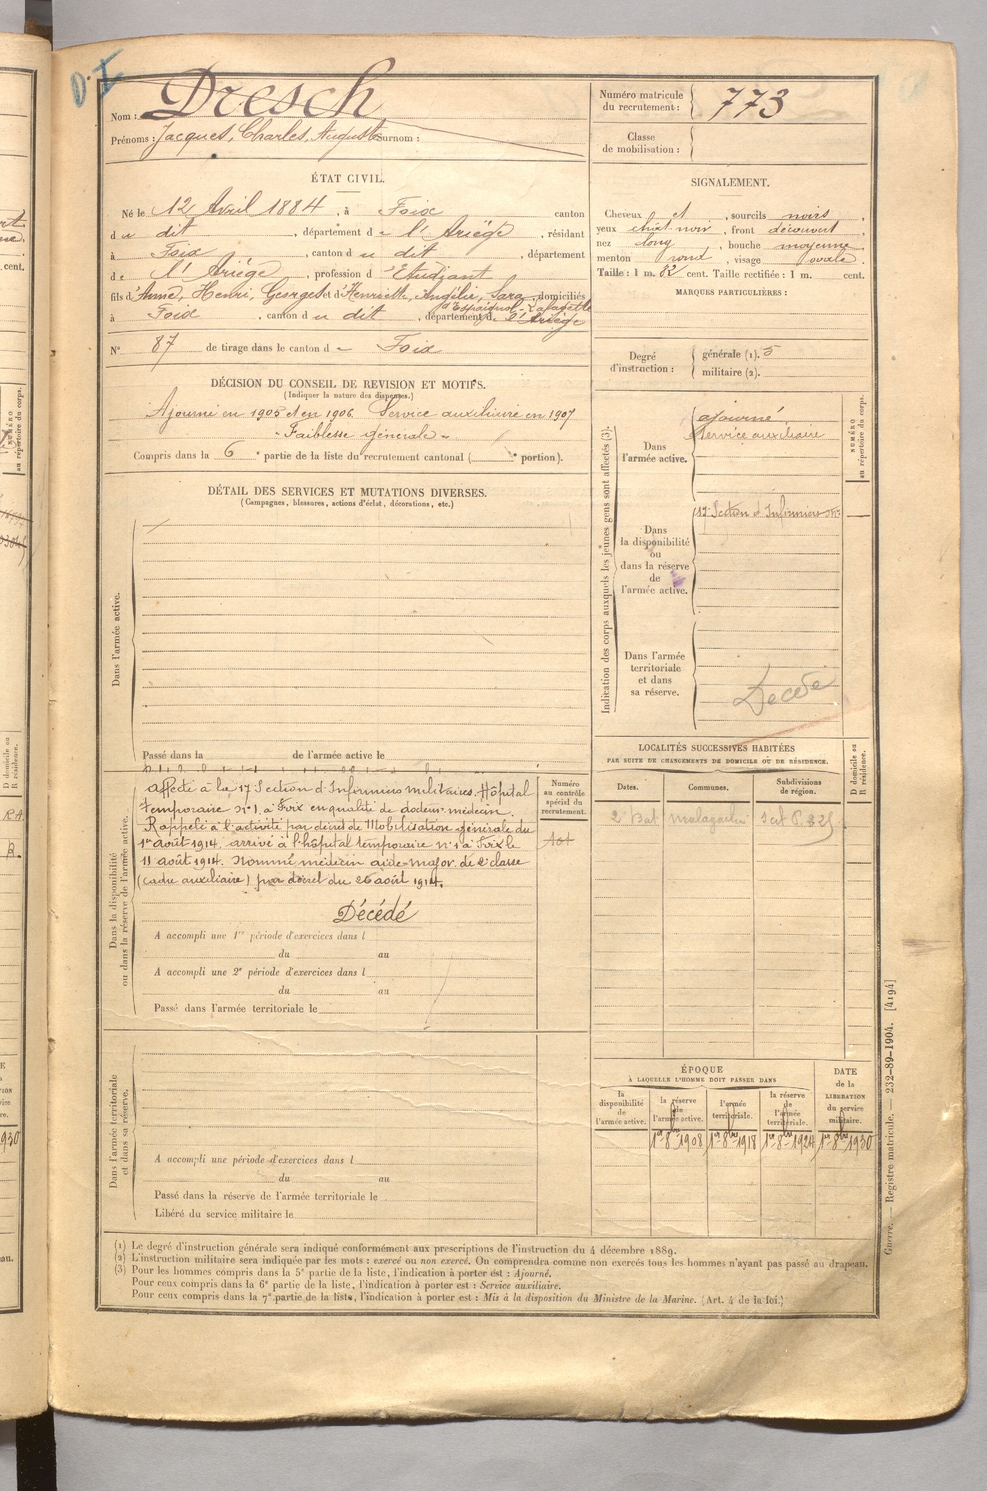 D. I
Nom : Dresch
Prénoms : Jacques, Charles, Auguste Surnom :
Numéro matricule du recrutement : 773
Classe de mobilisation :
ÉTAT CIVIL.
Né le 12 Avril 1884, à Foix canton
du dit, département de l'Ariège, résidant
à Foix, canton du dit, département
de l'Ariège, profession d'Étudiant
fils d'Armel, Henri, Georges et d'Henriette, Angélie, Sara, domiciliés
d'Espaignol-Lafagette
à Foix, canton du dit, département de l'Ariège
N° 87 de tirage dans le canton de Foix
SIGNALEMENT.
Cheveux et, sourcils noirs,
yeux chat. noir, front découvert,
nez long, bouche moyenne,
menton rond, visage ovale.
Taille : 1 m. 62 cent. Taille rectifiée : 1 m. cent.
MARQUES PARTICULIÈRES :
Degré d'instruction :
générale (1). 5
militaire (2).
DÉCISION DU CONSEIL DE REVISION ET MOTIFS.
(Indiquer la nature des dispenses.)
Ajourné en 1905 et en 1906. Service auxiliaire en 1907
"Faiblesse générale"
Compris dans la 6e partie de la liste du recrutement cantonal ( e portion).
DÉTAIL DES SERVICES ET MUTATIONS DIVERSES.
(Campagnes, blessures, actions d'éclat, décorations, etc.)
Dans l'armée active.
Passé dans la de l'armée active le
Indication des corps auxquels les jeunes gens sont affectés (3).
NUMÉRO au répertoire du corps.
Dans l'armée active.
ajourné,
Service auxiliaire
Dans la disponibilité ou dans la réserve de l'armée active.
17e Section d'Infirmiers
Dans l'armée territoriale et dans sa réserve.
Décédé
Dans la disponibilité ou dans la réserve de l'armée active.
Affecté à la 17e Section d'Infirmiers Militaires. Hôpital
temporaire N° 1, à Foix en qualité de docteur médecin.
Rappelé à l'activité par décret de Mobilisation générale du
1er août 1914, arrivé à l'hôpital temporaire n° 1 à Foix le
11 août 1914. Nommé médecin aide-major de 2e classe
(cadre auxiliaire) par décret du 26 août 1914.
Décédé
A accompli une 1re période d'exercices dans l
du au
A accompli une 2e période d'exercices dans l
du au
Passé dans l'armée territoriale le
Numéro au contrôle spécial du recrutement.
LOCALITÉS SUCCESSIVES HABITÉES
PAR SUITE DE CHANGEMENTS DE DOMICILE OU DE RÉSIDENCE.
Dates. Communes. Subdivisions de région. D domicile ou R résidence.
Dans l'armée territoriale et dans sa réserve.
A accompli une période d'exercices dans l
du au
Passé dans la réserve de l'armée territoriale le
Libéré du service militaire le
ÉPOQUE
À LAQUELLE L'HOMME DOIT PASSER DANS
la disponibilité de l'armée active.
la réserve de l'armée active.
l'armée territoriale.
la réserve de l'armée territoriale.
DATE de la LIBÉRATION du service militaire.
1er 8bre 1908 1er 8bre 1918 1er 8bre 1924 1er 8bre 1930
Guerre. — Registre matricule. — 232-89-1904. [4194]
(1) Le degré d'instruction générale sera indiqué conformément aux prescriptions de l'instruction du 4 décembre 1889.
(2) L'instruction militaire sera indiquée par les mots : exercé ou non exercé. On comprendra comme non exercés tous les hommes n'ayant pas passé au drapeau.
(3) Pour les hommes compris dans la 5e partie de la liste, l'indication à porter est : Ajourné.
Pour ceux compris dans la 6e partie de la liste, l'indication à porter est : Service auxiliaire.
Pour ceux compris dans la 7e partie de la liste, l'indication à porter est : Mis à la disposition du Ministre de la Marine. (Art. 4 de la loi.)